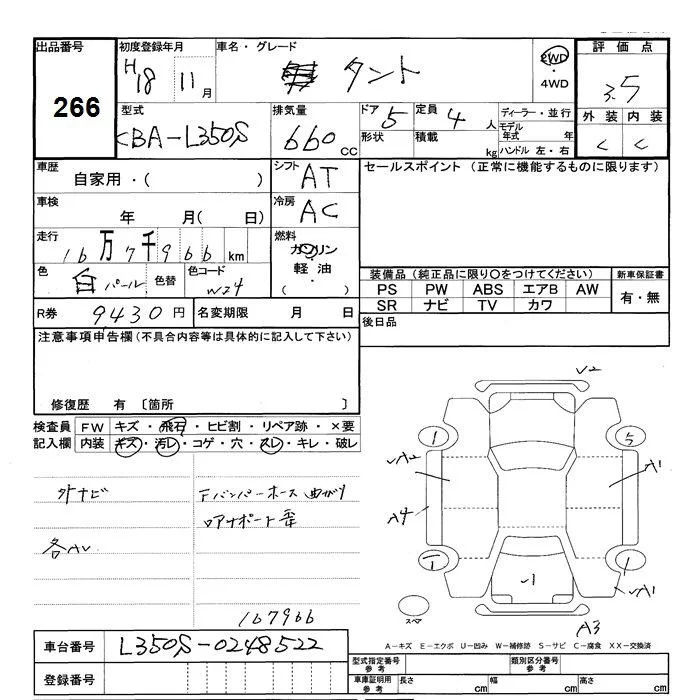 出品番号 初度登録年月 車名・グレード 評価点
266 H18 11月 タント 2WD・4WD 3.5
型式 排気量 ドア 5 定員 4人 ディーラー・並行 外装 内装
CBA-L350S 660 CC 形状 積載 kg モデル年式 年 ハンドル 左・右 C C
車歴 自家用・( ) シフト AT セールスポイント (正常に機能するものに限ります)
車検 年 月( 日) 冷房 AC
走行 16万7千966km 燃料 ガソリン・軽油・( )
色 白パール 色替 色コード W24 装備品(純正品に限り○をつけてください) 新車保証書
PS PW ABS エアB AW 有・無
SR ナビ TV カワ
R券 9430円 名変期限 月 日 後日品
注意事項申告欄(不具合内容等は具体的に記入して下さい)
修復歴 有 〔箇所 〕
検査員 FW キズ・飛石・ヒビ割・リペア跡・×要
記入欄 内装 キズ・汚レ・コゲ・穴・スレ・キレ・破レ
外ナビ Fバンパーホース曲がり
ロアサポート歪
各AU
167966
√2
1 5
A2 A1
A4
1 1
√1 √1
スペア A3
車台番号 L350S-0248522
A-キズ E-エクボ U-凹み W-補修跡 S-サビ C-腐食 XX-交換済
登録番号
型式指定番号 参考 類別区分番号 参考
車庫証明用 参考 長さ cm 幅 cm 高さ cm